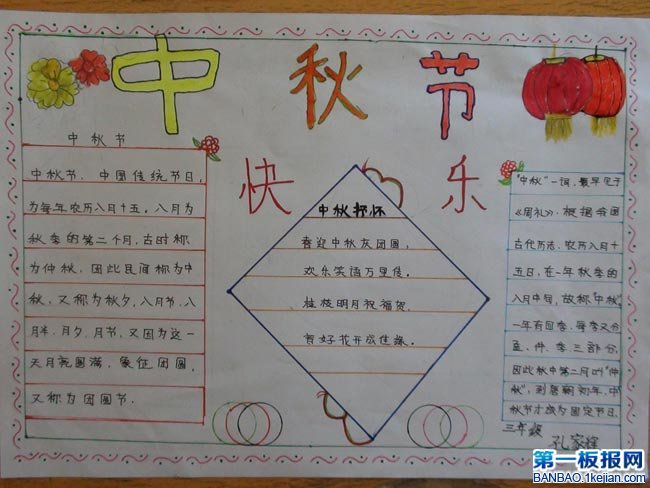 中秋节
快乐
中秋节
中秋节、中国传统节日,
为每年农历八月十五,八月为
秋季的第二个月,古时称
为仲秋,因此民间称为中
秋,又称为秋夕,八月节,八
月半,月夕,月节,又因为这一
天月亮圆满,象征团圆,
又称为团圆节.
中秋抒怀
喜迎中秋友团圆,
欢乐笑语万里传。
桂枝明月祝福贺,
智好花开成佳缘。
"中秋"一词,最早见于
《周礼》.根据我国
古代历法,农历八月十
五日,在一年秋季的
八月中旬,故称"中秋".
一年有四季,每季又分
孟、仲、季三部分,
因此秋中第二月叫"仲
秋",到唐朝初年,中
秋节才成为固定节日.
三年级
孔家
第一板报网
BANBAO.1kejian.com